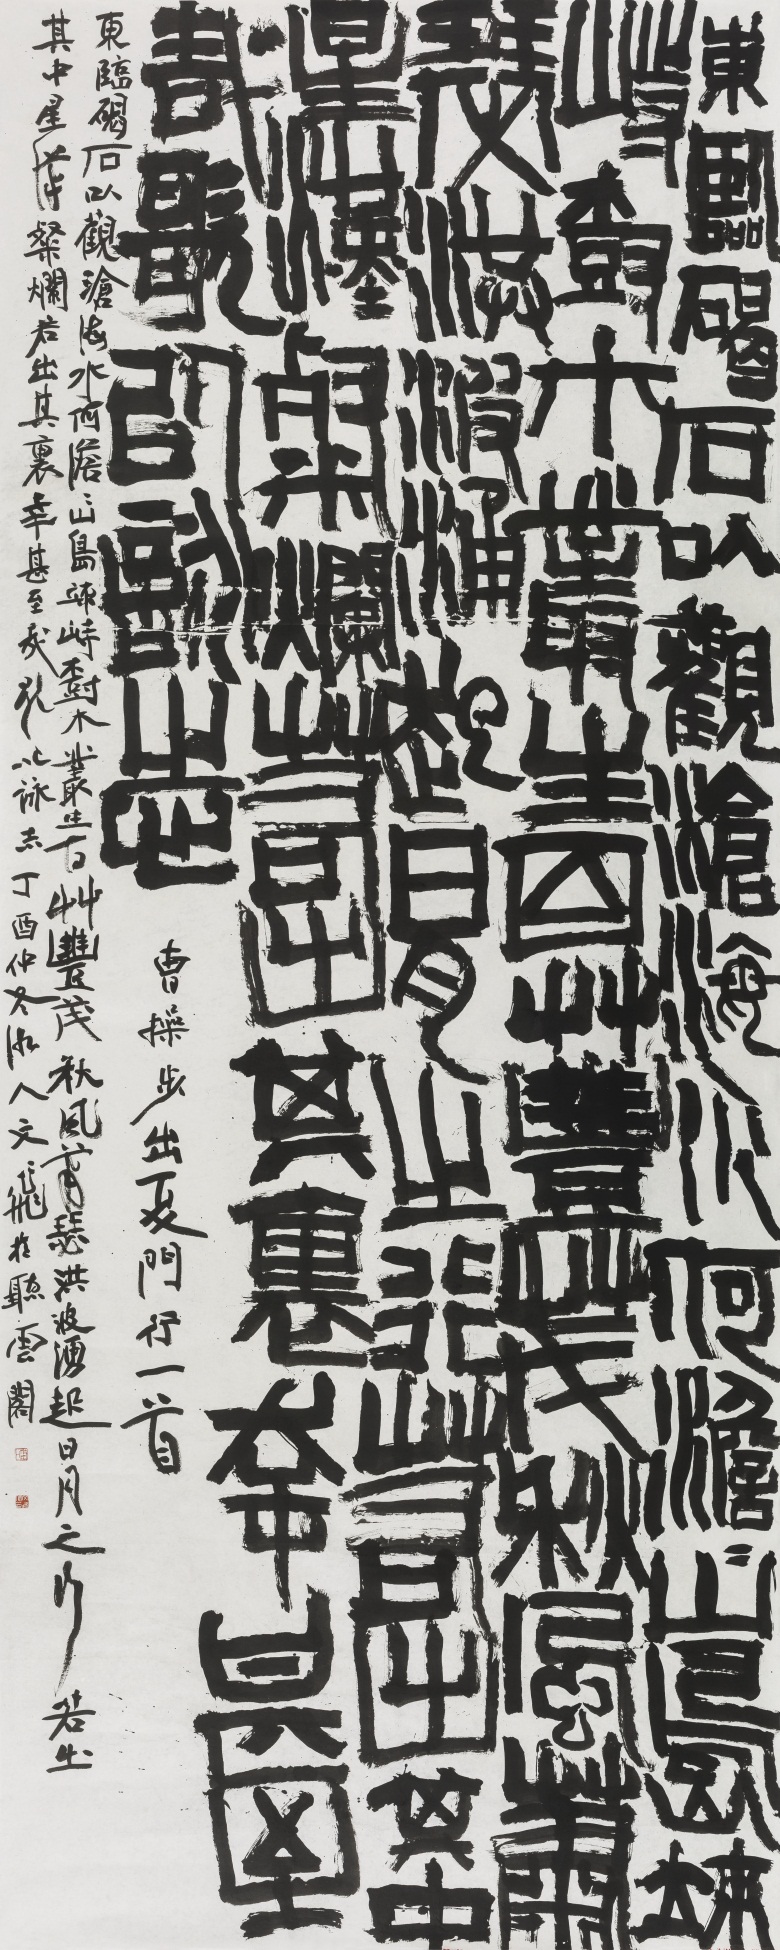 東臨碣石以觀滄海水何澹〻山島竦
峙樹木叢生百艸豐茂秋風蕭
瑟洪波涌起日月之行若出其中
星漢粲爛若出其裏幸甚至
哉歌以詠志
曹操步出夏門行一首
東臨碣石以觀滄海水何澹〻山島竦峙樹木叢生百艸豐茂秋風蕭瑟洪波湧起日月之行若出
其中星漢粲爛若出其裏幸甚至哉歌以詠志丁酉仲冬湘人文飛於聽雲閣